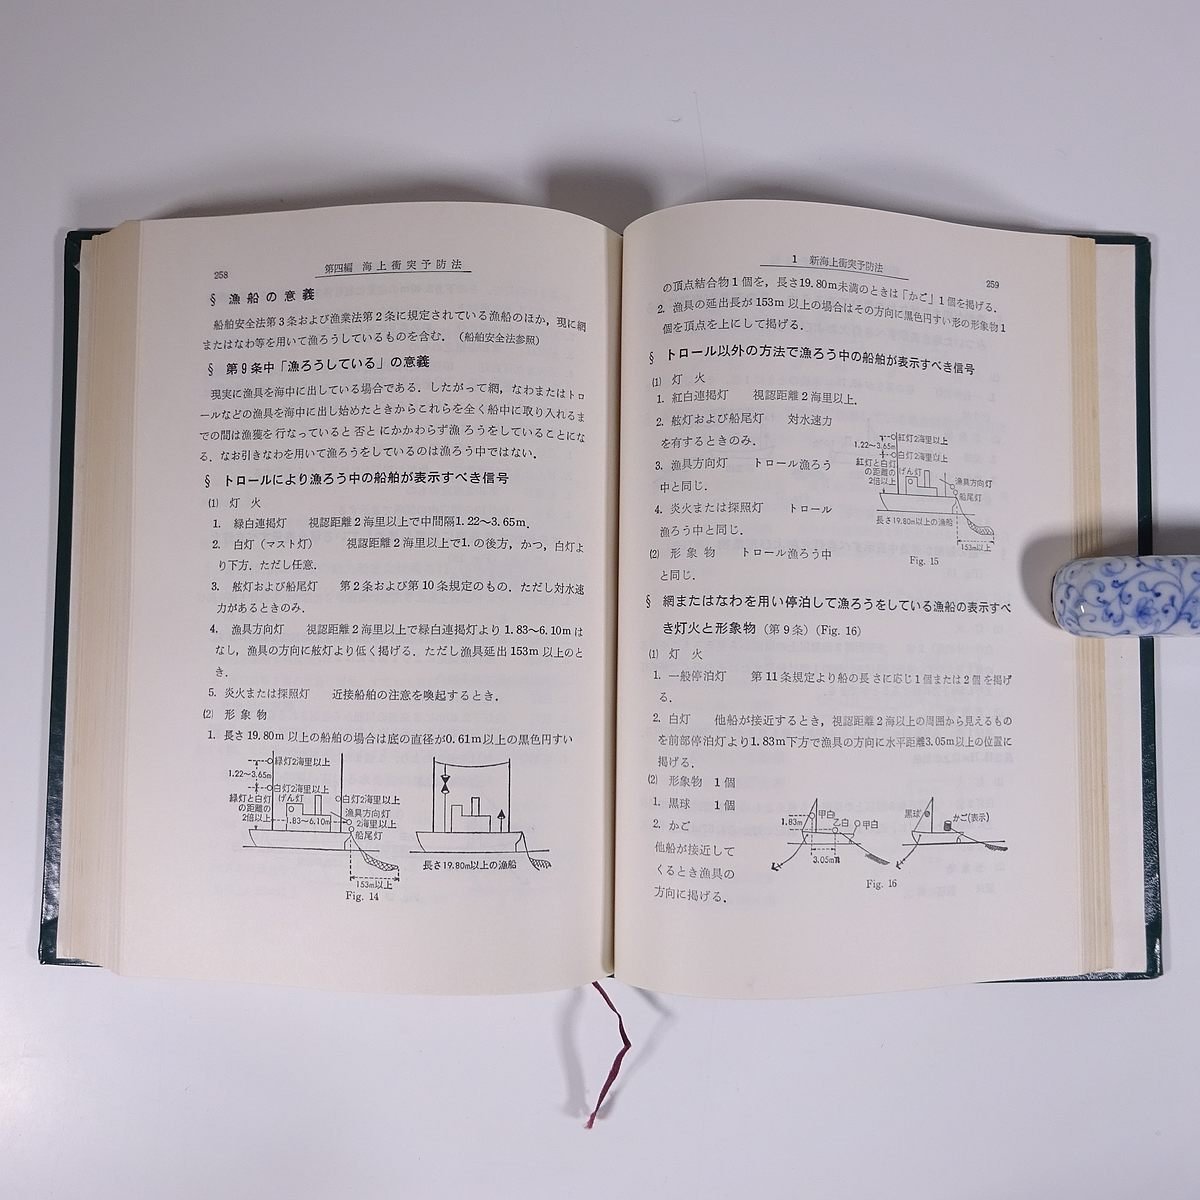 258
第四編 海上衝突予防法
§ 漁船の意義
船舶安全法第3条および漁業法第2条に規定されている漁船のほか，現に網
またはなわ等を用いて漁ろうしているものを含む．（船舶安全法参照）
§ 第9条中「漁ろうしている」の意義
現実に漁具を海中に出している場合である．したがって網，なわまたはトロ
ールなどの漁具を海中に出し始めたときからこれらを全く船中に取り入れるま
での間は漁獲を行なっていると否とにかかわらず漁ろうをしていることにな
る．なお引きなわを用いて漁ろうをしているのは漁ろう中ではない．
§ トロールにより漁ろう中の船舶が表示すべき信号
(1) 灯火
1. 緑白連掲灯 視認距離2海里以上で中間隔1.22〜3.65m．
2. 白灯（マスト灯） 視認距離2海里以上で1.の後方，かつ，白灯よ
り下方．ただし任意．
3. 舷灯および船尾灯 第2条および第10条規定のもの．ただし対水速
力があるときのみ．
4. 漁具方向灯 視認距離2海里以上で緑白連掲灯より1.83〜6.10mは
なし，漁具の方向に舷灯より低く掲げる．ただし漁具延出153m以上のと
き．
5. 炎火または探照灯 近接船舶の注意を喚起するとき．
(2) 形象物
1. 長さ19.80m以上の船舶の場合は底の直径が0.61m以上の黒色円すい
緑灯2海里以上
1.22〜3.65m
白灯2海里以上
緑灯と白灯
の距離の
2倍以上
げん灯
1.83〜6.10m
白灯2海里以上
漁具方向灯
2海里以上
船尾灯
153m以上
長さ19.80m以上の漁船
Fig. 14
1 新海上衝突予防法
259
の頂点結合物1個を，長さ19.80m未満のときは「かご」1個を掲げる．
2. 漁具の延出長が153m以上の場合はその方向に黒色円すい形の形象物1
個を頂点を上にして掲げる．
§ トロール以外の方法で漁ろう中の船舶が表示すべき信号
(1) 灯火
1. 紅白連掲灯 視認距離2海里以上．
2. 舷灯および船尾灯 対水速力
を有するときのみ．
3. 漁具方向灯 トロール漁ろう
中と同じ．
4. 炎火または探照灯 トロール
漁ろう中と同じ．
(2) 形象物 トロール漁ろう中
と同じ．
紅灯2海里以上
1.22〜3.65m
白灯2海里以上
紅灯と白灯
の距離の
2倍以上
げん灯
漁具方向灯
船尾灯
長さ19.80m以上の漁船
153m以上
Fig. 15
§ 網またはなわを用い停泊して漁ろうをしている漁船の表示すべ
き灯火と形象物（第9条）(Fig. 16)
(1) 灯火
1. 一般停泊灯 第11条規定より船の長さに応じ1個または2個を掲げ
る．
2. 白灯 他船が接近するとき，視認距離2海以上の周囲から見えるもの
を前部停泊灯より1.83m下方で漁具の方向に水平距離3.05m以上の位置に
掲げる．
(2) 形象物 1個
1. 黒球 1個
2. かご
他船が接近して
くるとき漁具の
方向に掲げる．
甲白
1.83m
乙白
甲白
3.05m
黒球
かご(表示)
Fig. 16